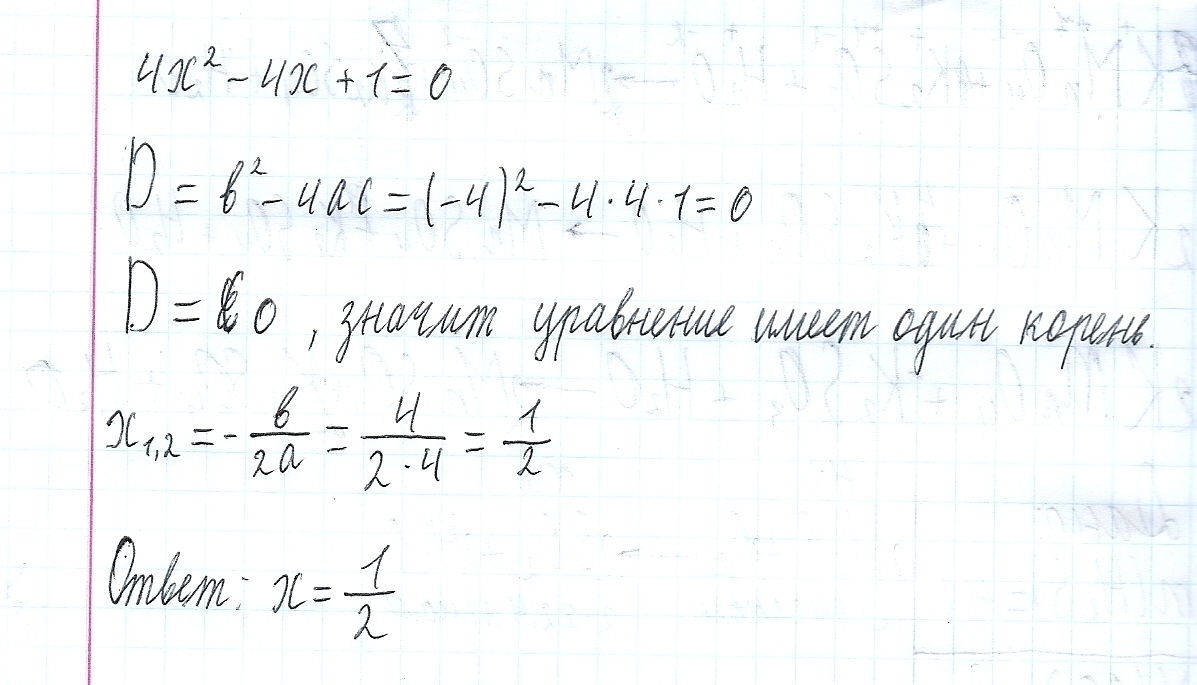 4x² - 4x + 1 = 0
D = b² - 4ac = (-4)² - 4·4·1 = 0
D = 0, значит уравнение имеет один корень.
x₁,₂ = - b/2a = 4/2·4 = 1/2
Ответ: x = 1/2